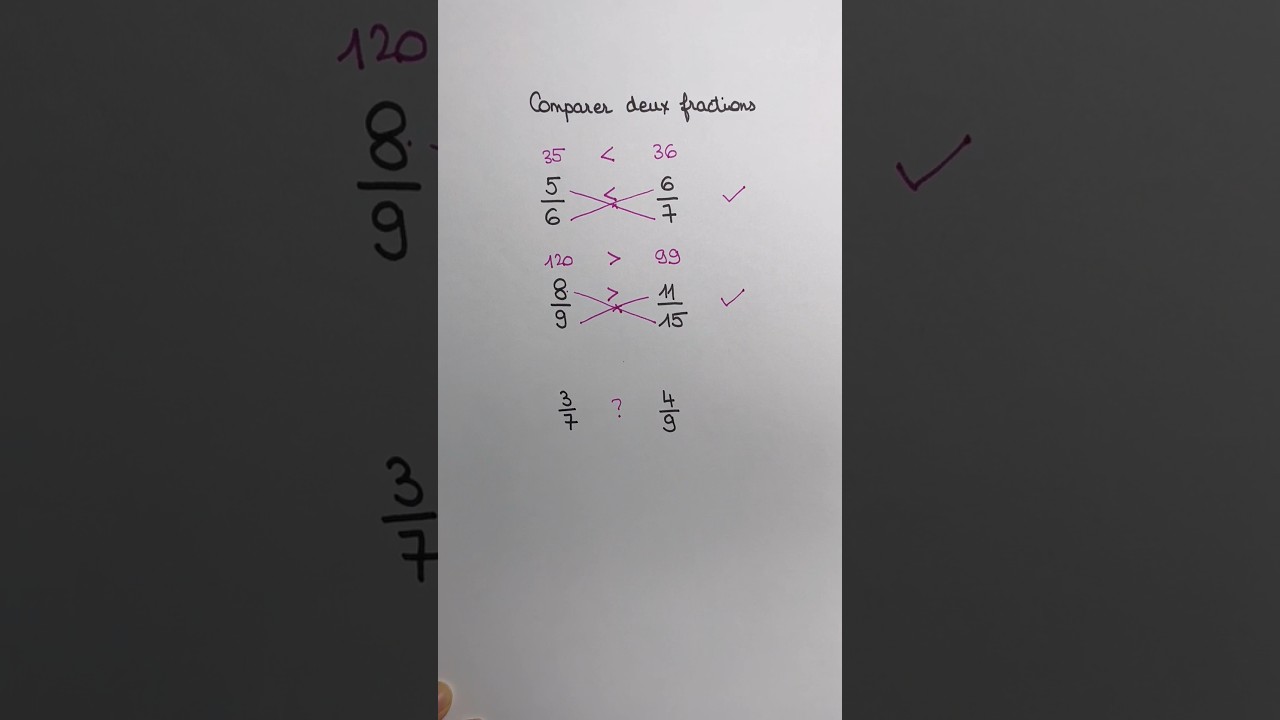 Comparer deux fractions
35 < 36
5/6 < 6/7 ✓
120 > 99
8/9 > 11/15 ✓
3/7 ? 4/9
120
8/9
✓
3/7